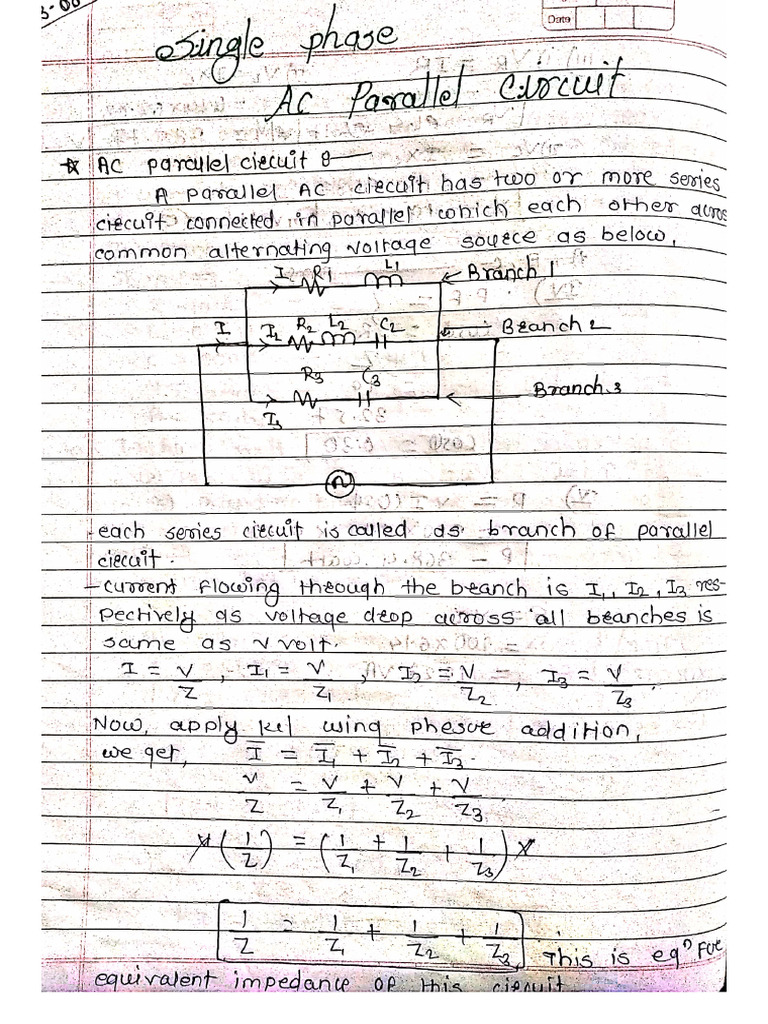 3-08
Date
Single phase
AC Parallel Circuit
* AC parallel circuit :-
A parallel AC circuit has two or more series
circuit connected in parallel which each other across
common alternating voltage source as below,
I1 R1 L1 ← Branch 1
I I2 R2 L2 C2 ← Branch 2
R3 C3 ← Branch 3
I3
- each series circuit is called as branch of parallel
circuit.
- current flowing through the branch is I1, I2, I3 res-
pectively as voltage drop across all branches is
same as v volt.
I = V/Z , I1 = V/Z1 , I2 = V/Z2 , I3 = V/Z3 .
Now, apply kcl using phesor addition,
we get, I̅ = I̅1 + I̅2 + I̅3 .
V/Z = V/Z1 + V/Z2 + V/Z3
V(1/Z) = (1/Z1 + 1/Z2 + 1/Z3) V
1/Z = 1/Z1 + 1/Z2 + 1/Z3 . This is eqn for
equivalent impedance of this circuit